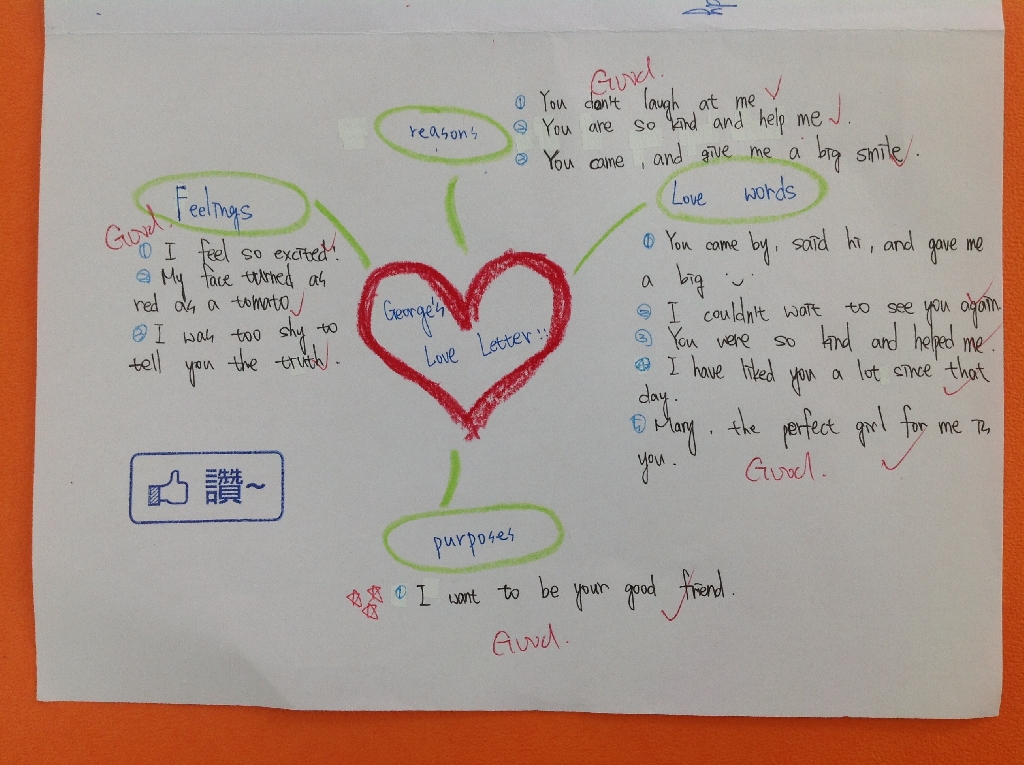 Good.
reasons
① You don't laugh at me
② You are so kind and help me.
③ You came, and give me a big smile.
Feelings
Good.
① I feel so excited.
② My face turned as
red as a tomato
③ I was too shy to
tell you the truth.
Love words
① You came by, said hi, and gave me
a big
② I couldn't wait to see you again
③ You were so kind and helped me.
④ I have liked you a lot since that
day.
⑤ Mary, the perfect girl for me is
you.
Good.
George's
Love Letter
讚~
purposes
① I want to be your good friend.
Good.